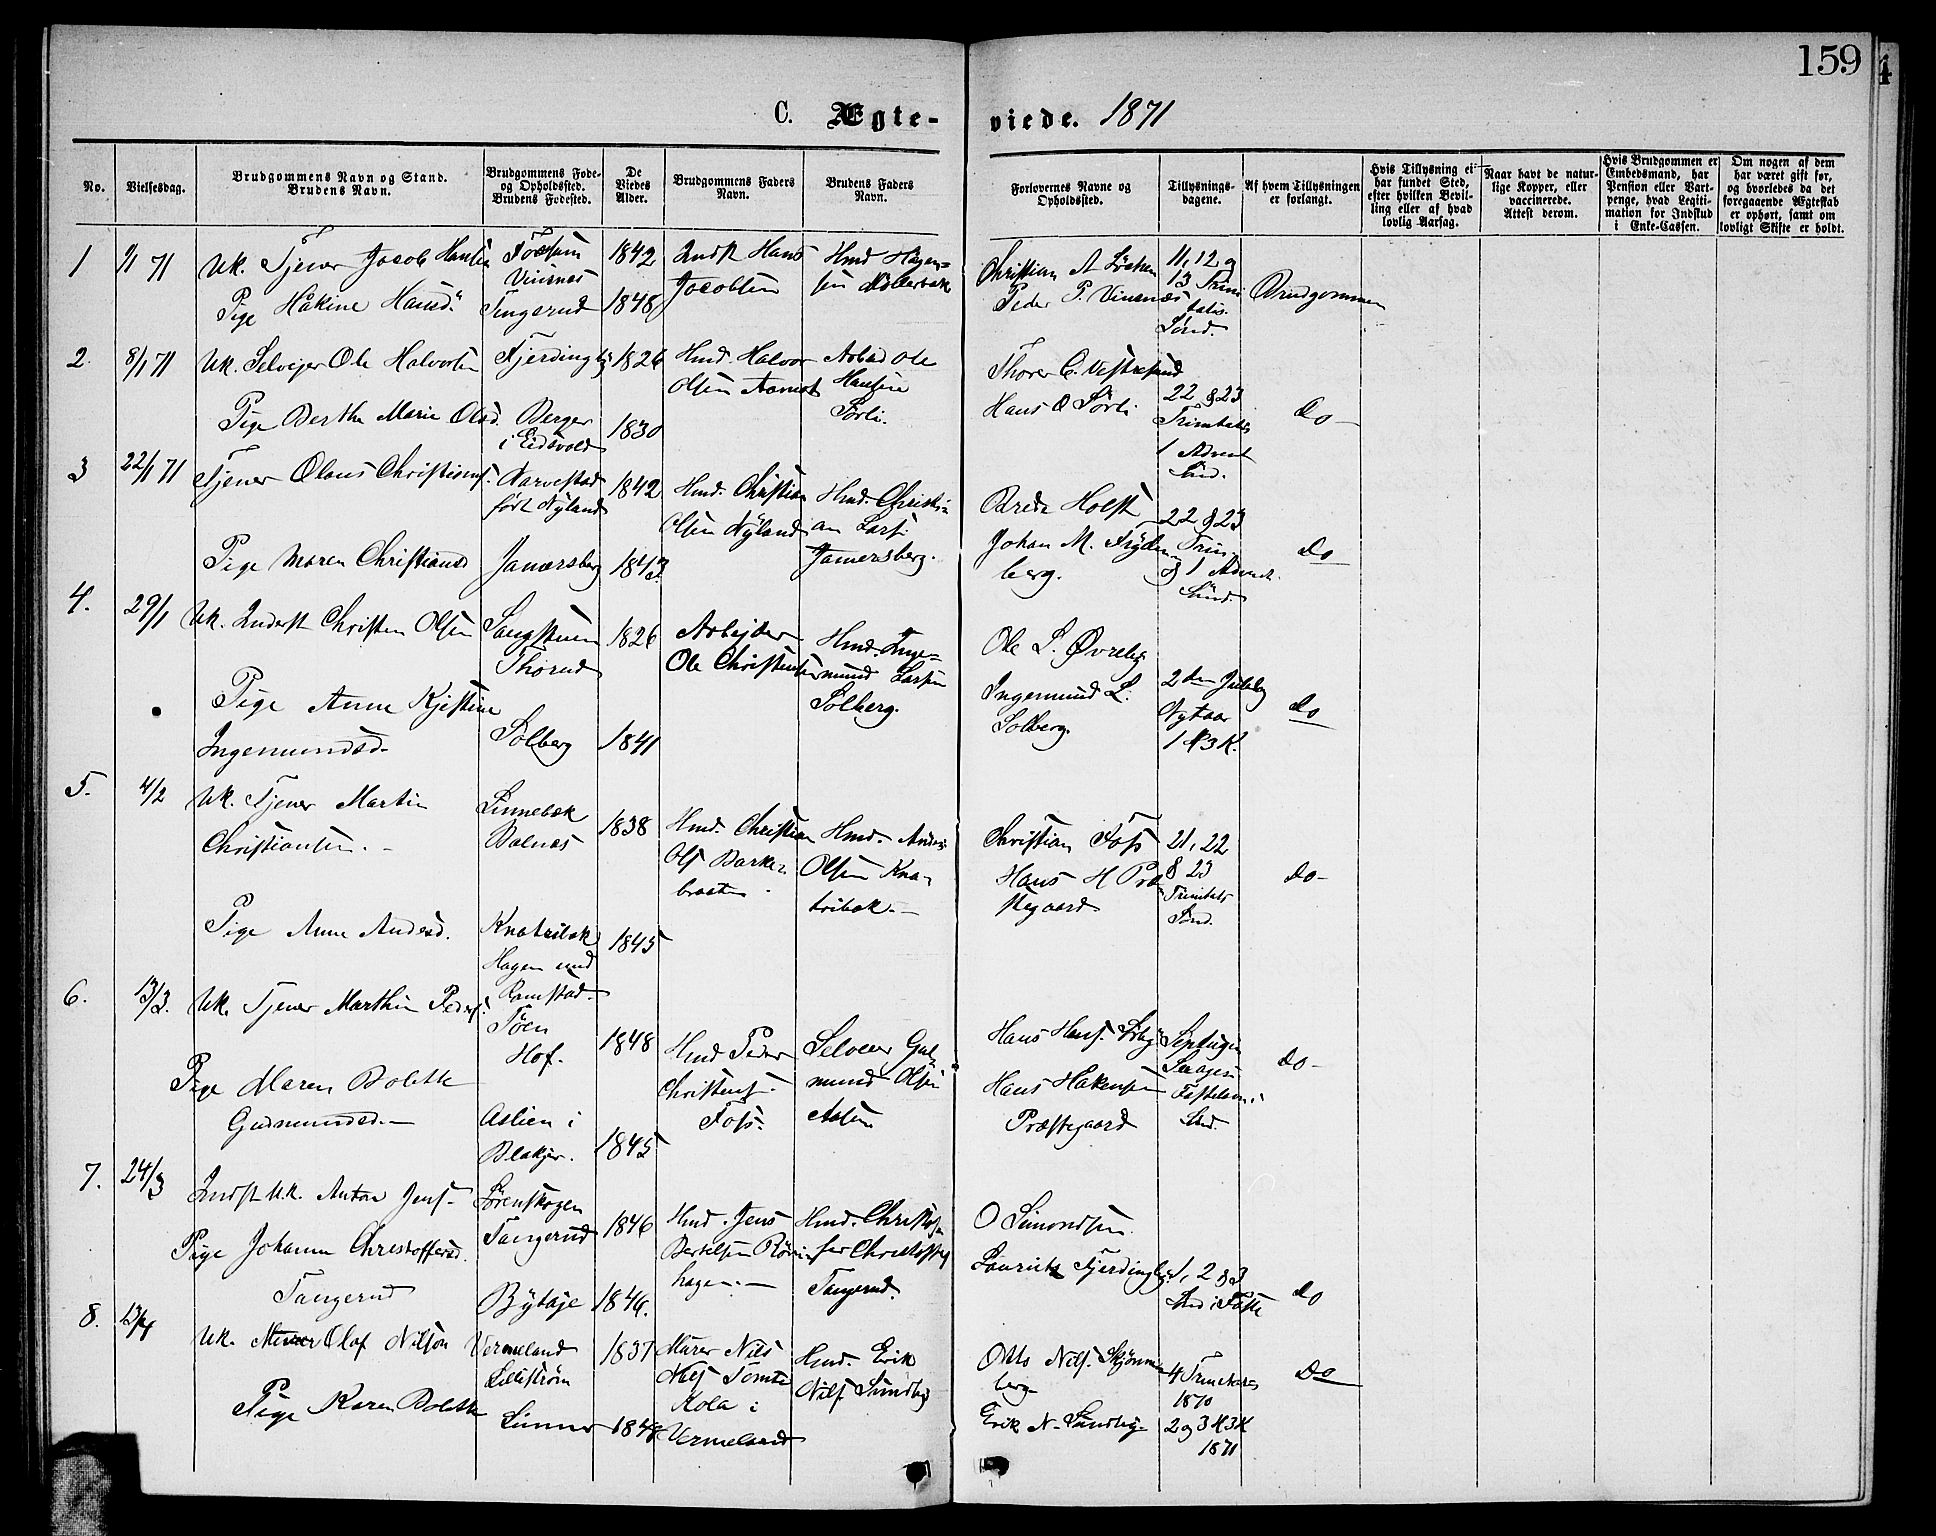 159
C. Ægte- viede. 1871
No.
Vielsesdag.
Brudgommens Navn og Stand.
Brudens Navn.
Brudgommens Føde-
og Opholdssted.
Brudens Fødested.
De
Viedes
Alder.
Brudgommens Faders
Navn.
Brudens Faders
Navn.
Forlovernes Navne og
Opholdssted.
Tillysnings-
dagene.
Af hvem Tillysningen
er forlangt.
Hvis Tillysning ei
har fundet Sted,
efter hvilken Bevil-
ling eller af hvad
lovlig Aarsag.
Naar havt de natur-
lige Kopper, eller
vaccinerede.
Attest derom.
Hvis Brudgommen er
Embedsmand, har
Pension eller Vart-
penge, hvad Legiti-
mation for Indskud
i Enke-Cassen.
Om nogen af dem
har været gift før,
og hvorledes da det
foregaaende Ægteskab
er ophørt, samt om
lovligt Skifte er holdt.
1
1/1 71
Uk. Tjener Jacob Hansen
Pige Hakine Hansd.
Vinsnes
Tingerud
1842
1848
Indst Hans
Jacobsen
Hmd Hagen-
sen
Christian A
Peder P. Vinsnes
11, 12 og
13 Trini
tatis
Sønd.
Brudgommen
2.
8/1 71
Uk. Selvejer Ole Halvorsen
Pige Berthe Marie Olsd.
Fjerdingby
Berger
i Eidsvold
1826
1830
Hmd. Halvor
Olsen Aamot
Arbeid Ole
Hansen
Sørli.
Thorer C. Vestresund
Hans O Sørli
22 & 23
Trinitatis
1 Advent
Sønd.
Do
3
22/1 71
Tjener Olaus Christians.
Pige Maren Christiansd
Narvestad
født Nyland
Janersberg
1842
1843.
Hmd. Christian
Olsen Nyland
Hmd. Christi-
an Lars.
Janersberg.
Brede Holst
Johan M. Fryden-
berg.
22 & 23
Trin.
& 1 Advent.
Sønd.
Do
4.
29/1
Uk. Inderst Christen Olsen
Pige Anne Kjestine
Ingemundsd.
Sangstuen
Thorud
Solberg
1826
1841
Arbejder
Ole Christensen
Hmd. Inge-
mund Larsen
Solberg.
Ole L. Øvreby
Ingemund L.
Solberg.
2den Juledg
Nytaar
1 S H3K.
Do
5.
4/2
Uk. Tjener Martin
Christiansen.
Pige Anne Andersd.
Linnebæk
Bolnæs
Knatribæk
1838
1845
Hmd. Christian
Ols Barke-
braaten
Hmd. Anders
Olsen Kna-
tribæk.
Christian Foss
Hans H Præ-
stegaard
21, 22
& 23
Trinitatis
Sønd.
Do
6.
13/3.
Uk. Tjener Marthin Peders.
Pige Maren Bolette
Gudmundsd.
Hagen und
Ramstad.
Hof.
Aslien i
Blakjer.
1848
1845
Hmd Peder
Christens.
Foss.
Selveier Gud-
mund Olsen
Aslien
Hans Hans.
Hans Hakensen
Præstegaard
Septuges
Sexages
Fastelavns
Sønd.
Do
7.
24/3
Indst U.k. Anton Jens.
Pige Johanne Christoffersd.
Tangerud
Sørenskogen
Tangerud
Bytaje
1846
1846.
Hmd. Jens
Bertelsen
hagen.
Hmd. Christof-
fer Christoffers
Tangerud.
O Simondsen
Lauritz Fjerdingby
1, 2 & 3
Snd i Faste
Do
8.
13/4
Uk. Olof Nilson
Pige Karen Bolette
Vermeland
Lillestrøm
1837
1848
Murer Nils
Nils Tomte
Kola i
Vermeland
Hmd. Erik
Nils Sundby
Otto Nils. Skjønne-
berg
Erik N. Sundby
4 Trinitatis
1870
2 og 3 H3K
1871
Do